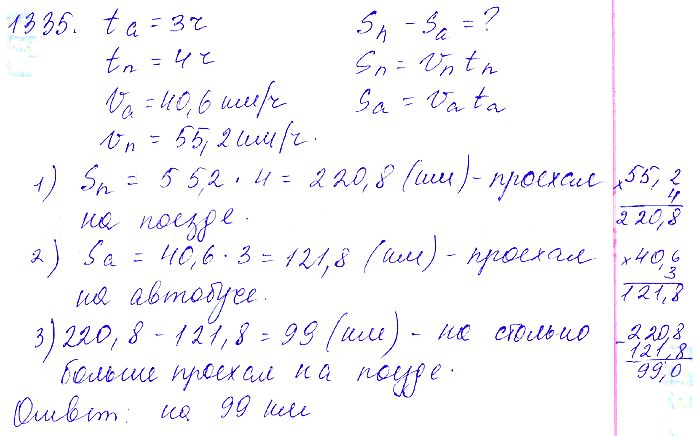 1335. tа = 3ч Sп - Sа = ?
tп = 4ч Sп = Vп tп
Vа = 40,6 км/ч Sа = Vа tа
Vп = 55,2 км/ч.
1) Sп = 55,2 · 4 = 220,8 (км) - проехал
на поезде.
2) Sа = 40,6 · 3 = 121,8 (км) - проехал
на автобусе.
3) 220,8 - 121,8 = 99 (км) - на столько
больше проехал на поезде.
Ответ: на 99 км
×55,2
4
220,8
×40,6
3
121,8
-220,8
121,8
99,0